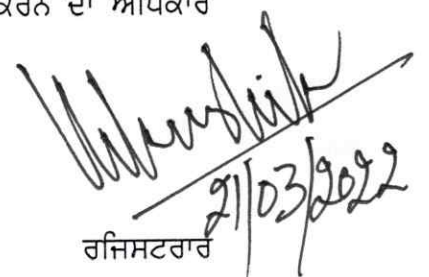 ਕਰਨ ਦਾ ਅਧਿਕਾਰ
21/03/2022
ਰਜਿਸਟਰਾਰ